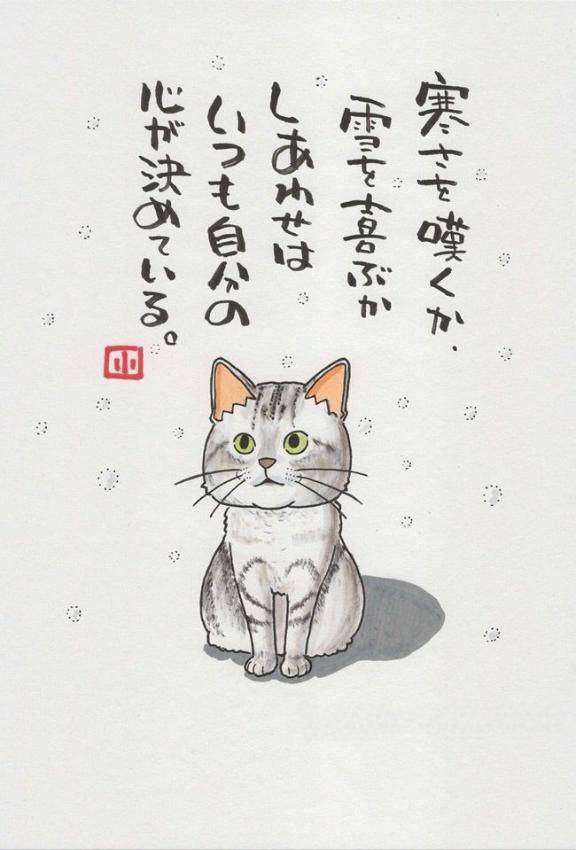 寒さを嘆くか、
雪を喜ぶか
しあわせは
いつも自分の
心が決めている。
小